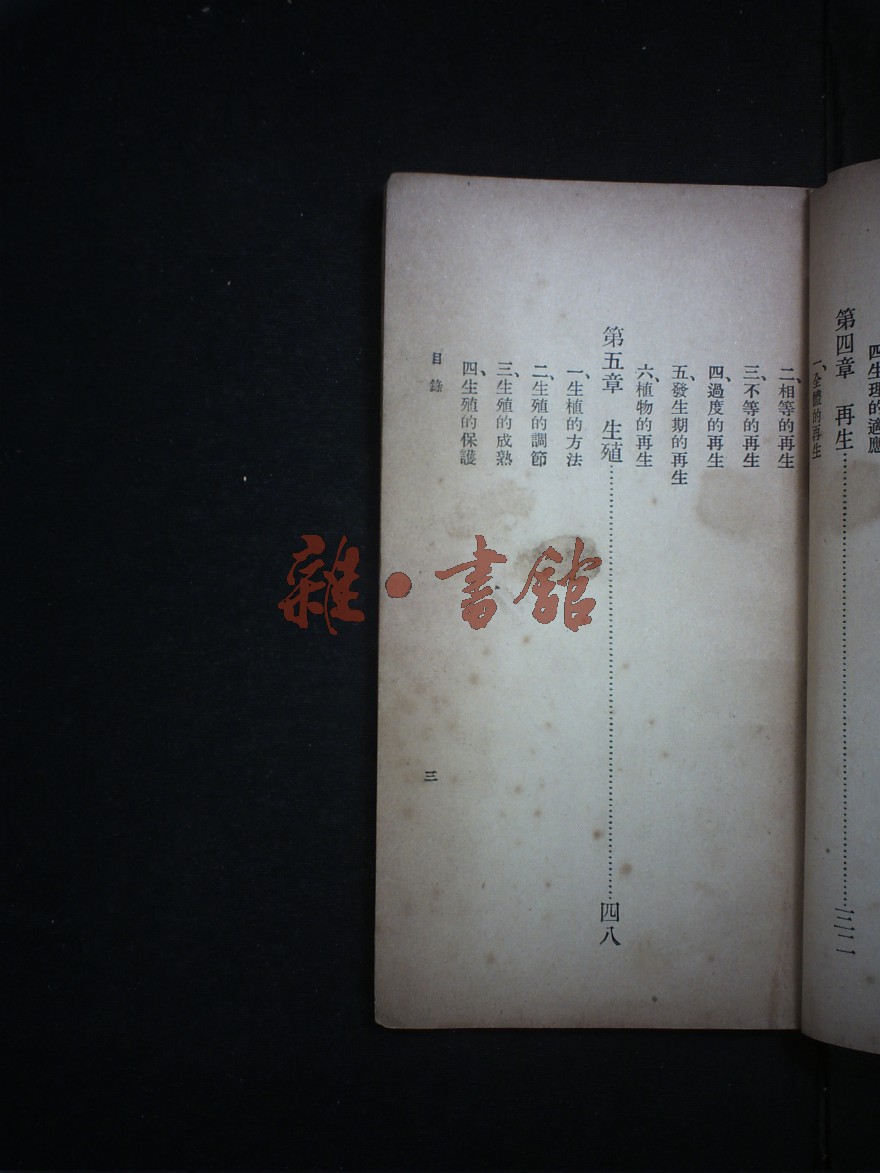 四、生理的適應
第四章　再生……三二
一、全體的再生
二、相等的再生
三、不等的再生
四、過度的再生
五、發生期的再生
六、植物的再生
第五章　生殖……四八
一、生植的方法
二、生殖的調節
三、生殖的成熟
四、生殖的保護
目錄
三
雜•書館